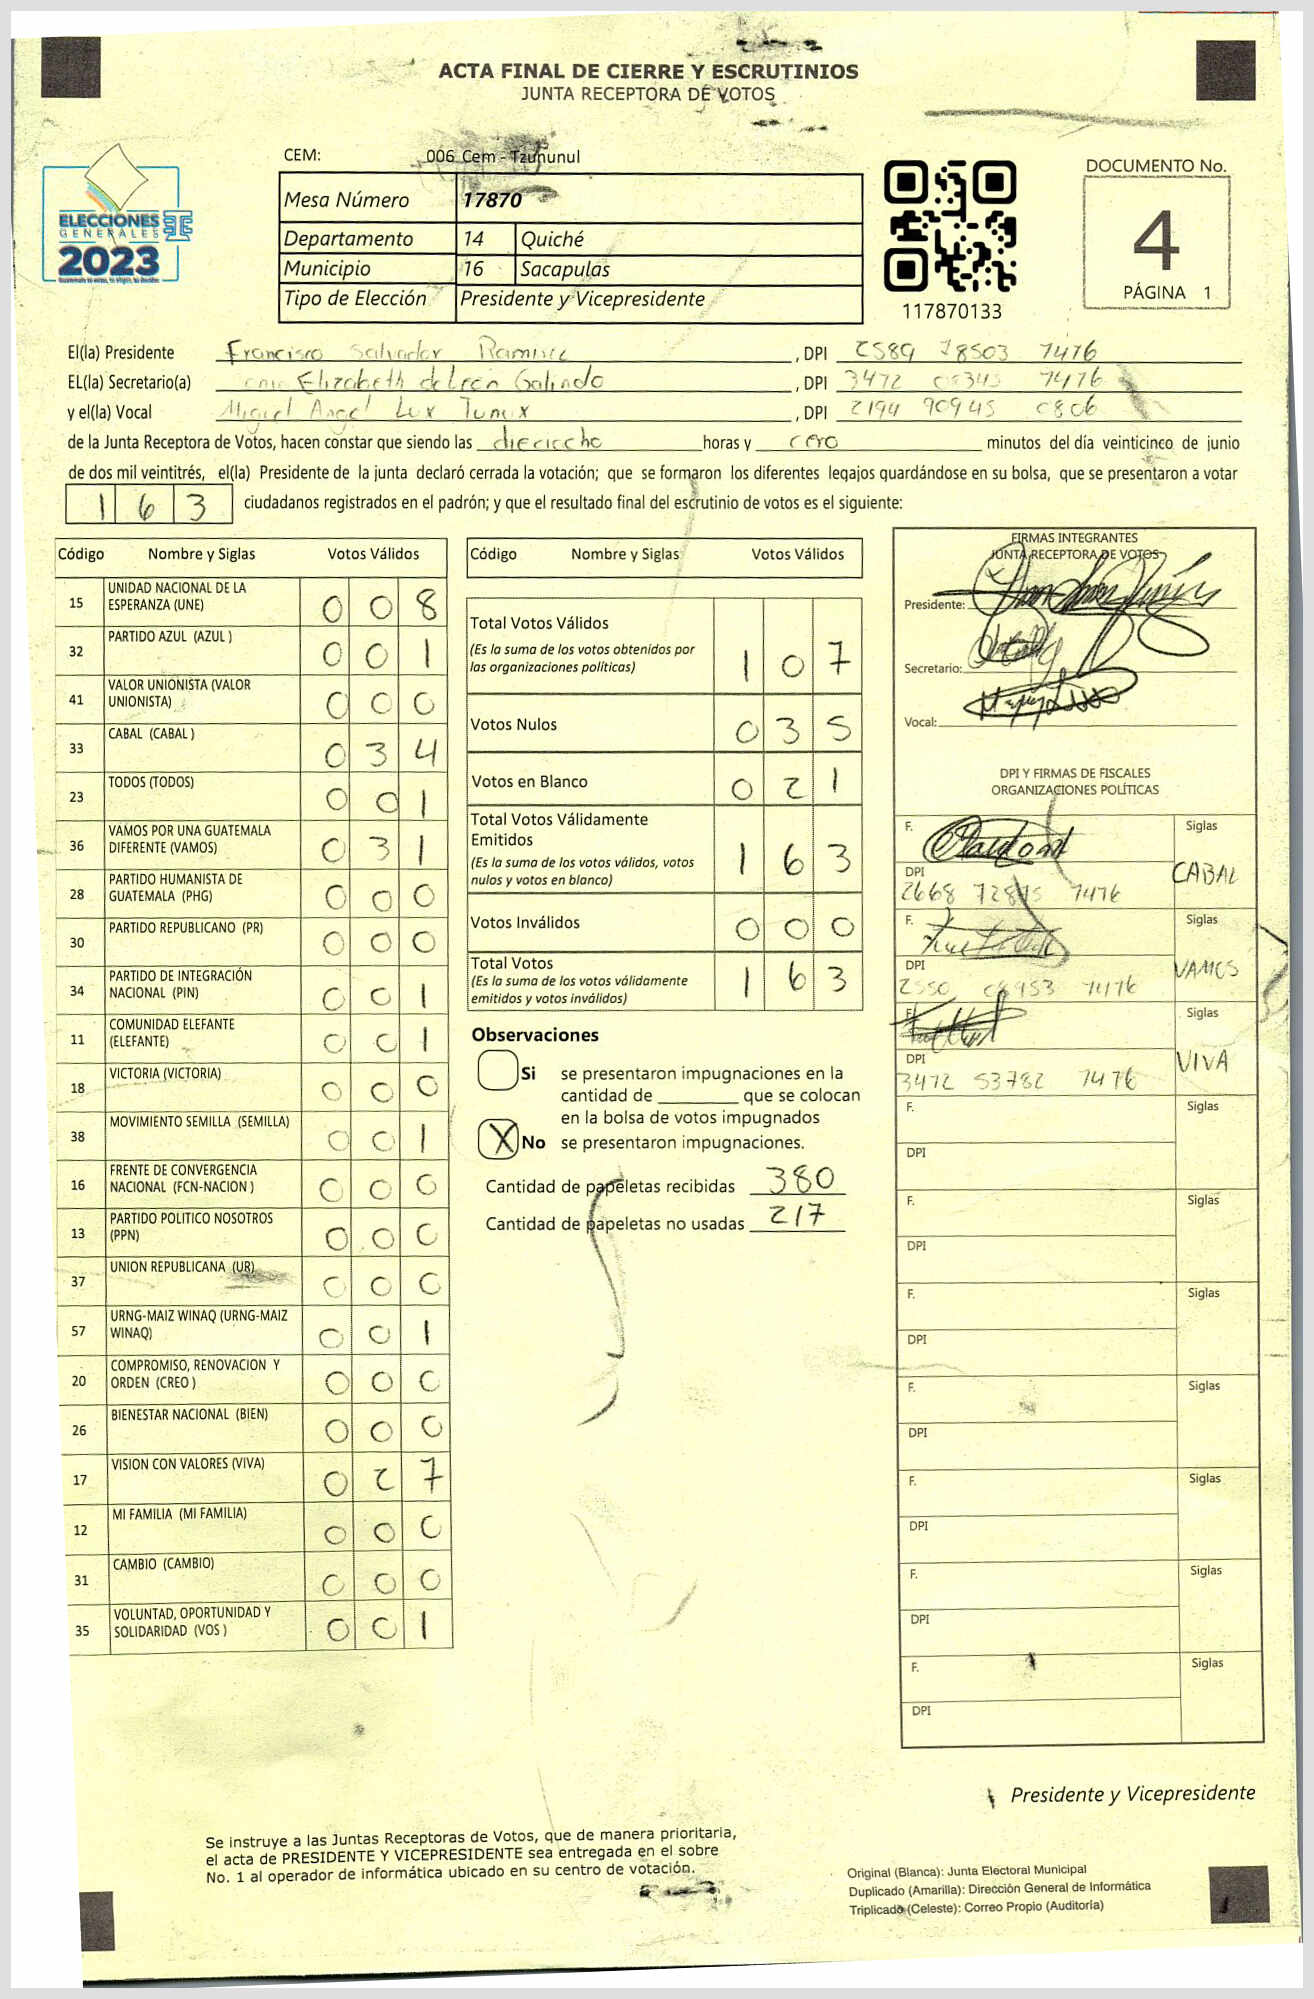 ACTA FINAL DE CIERRE Y ESCRUTINIOS
JUNTA RECEPTORA DE VOTOS
CEM: 006 Cem - Tzununul
ELECCIONES
GENERALES
2023
Mesa Número 17870
Departamento 14 Quiché
Municipio 16 Sacapulas
Tipo de Elección Presidente y Vicepresidente
117870133
DOCUMENTO No.
4
PÁGINA 1
El(la) Presidente Francisco Salvador Ramirez , DPI 2589 78503 7476
EL(la) Secretario(a) Elizabeth de León Galindo , DPI 3472 7476
y el(la) Vocal Miguel Angel Lux Tunux , DPI 2194 90945 0806
de la Junta Receptora de Votos, hacen constar que siendo las dieciocho horas y cero minutos del día veinticinco de junio
de dos mil veintitrés, el(la) Presidente de la junta declaró cerrada la votación; que se formaron los diferentes legajos quardándose en su bolsa, que se presentaron a votar
163 ciudadanos registrados en el padrón; y que el resultado final del escrutinio de votos es el siguiente:
Código Nombre y Siglas Votos Válidos
15 UNIDAD NACIONAL DE LA ESPERANZA (UNE) 008
32 PARTIDO AZUL (AZUL ) 001
41 VALOR UNIONISTA (VALOR UNIONISTA) 000
33 CABAL (CABAL ) 034
23 TODOS (TODOS) 001
36 VAMOS POR UNA GUATEMALA DIFERENTE (VAMOS) 031
28 PARTIDO HUMANISTA DE GUATEMALA (PHG) 000
30 PARTIDO REPUBLICANO (PR) 000
34 PARTIDO DE INTEGRACIÓN NACIONAL (PIN) 001
11 COMUNIDAD ELEFANTE (ELEFANTE) 001
18 VICTORIA (VICTORIA) 000
38 MOVIMIENTO SEMILLA (SEMILLA) 001
16 FRENTE DE CONVERGENCIA NACIONAL (FCN-NACION ) 000
13 PARTIDO POLITICO NOSOTROS (PPN) 000
37 UNION REPUBLICANA (UR) 000
57 URNG-MAIZ WINAQ (URNG-MAIZ WINAQ) 001
20 COMPROMISO, RENOVACION Y ORDEN (CREO ) 000
26 BIENESTAR NACIONAL (BIEN) 000
17 VISION CON VALORES (VIVA) 027
12 MI FAMILIA (MI FAMILIA) 000
31 CAMBIO (CAMBIO) 000
35 VOLUNTAD, OPORTUNIDAD Y SOLIDARIDAD (VOS ) 001
Código Nombre y Siglas Votos Válidos
Total Votos Válidos 107
(Es la suma de los votos obtenidos por
las organizaciones políticas)
Votos Nulos 035
Votos en Blanco 021
Total Votos Válidamente
Emitidos 163
(Es la suma de los votos válidos, votos
nulos y votos en blanco)
Votos Inválidos 000
Total Votos 163
(Es la suma de los votos válidamente
emitidos y votos inválidos)
Observaciones
Si se presentaron impugnaciones en la
cantidad de ________ que se colocan
en la bolsa de votos impugnados
X No se presentaron impugnaciones.
Cantidad de papeletas recibidas 380
Cantidad de papeletas no usadas 217
FIRMAS INTEGRANTES
JUNTA RECEPTORA DE VOTOS
Presidente:
Secretario:
Vocal:
DPI Y FIRMAS DE FISCALES
ORGANIZACIONES POLÍTICAS
F. Siglas
CABAL
DPI
2668 7476
F. Siglas
VAMOS
DPI
2550 7476
F. Siglas
VIVA
DPI
3472 53782 7476
F. Siglas
DPI
F. Siglas
DPI
F. Siglas
DPI
F. Siglas
DPI
F. Siglas
DPI
F. Siglas
DPI
F. Siglas
DPI
Presidente y Vicepresidente
Se instruye a las Juntas Receptoras de Votos, que de manera prioritaria,
el acta de PRESIDENTE Y VICEPRESIDENTE sea entregada en el sobre
No. 1 al operador de informática ubicado en su centro de votación.
Original (Blanca): Junta Electoral Municipal
Duplicado (Amarilla): Dirección General de Informática
Triplicado (Celeste): Correo Propio (Auditoría)